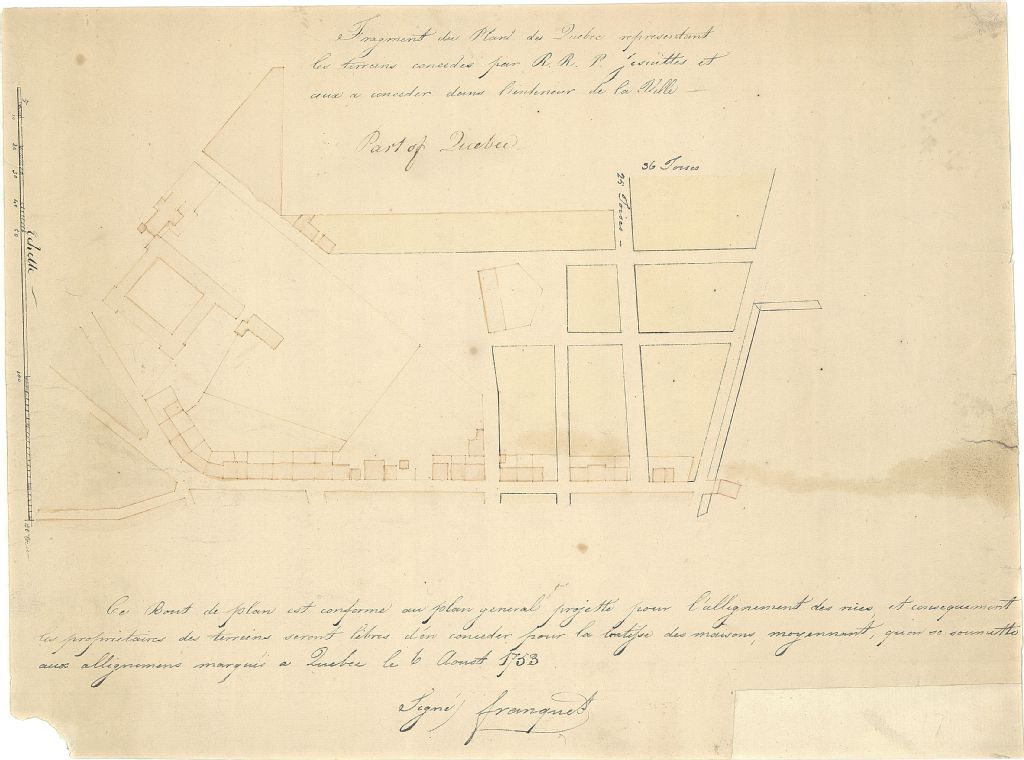 Fragment du Plan de Quebec representant
les terreins concedes par R. R. P. Jesuittes et
ceux a conceder dans l'interieur de la Ville —
Part of Quebec
36 Toises
28 Toises —
Echelle —
10
20
30
40
50
100
Ce Bout de plan est conforme au plan general projetté pour l'allignement des rües, et consequament
les proprietaires des terreins seront libres d'en conceder pour la batisse des maisons, moyennant, qu'on se soumette
aux allignemens marqués a Quebec le 6 Aoust 1753
Signé) franquet